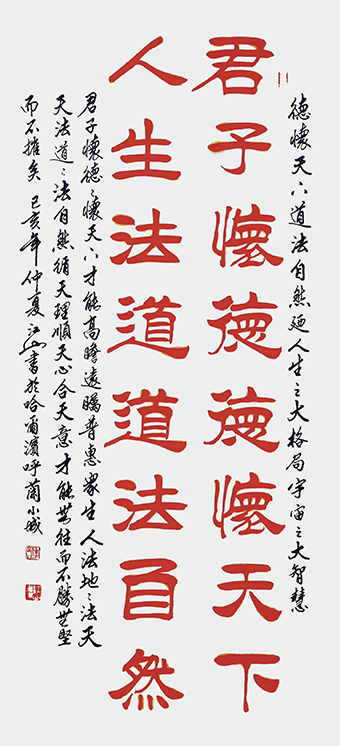 德懷天下道法自然廼人生之大格局宇宙之大智慧
君子懷德德懷天下
人生法道道法自然
君子懷德〻懷天下才能高瞻遠矚普惠眾生人法地〻法天
天法道〻法自然循天理順天心合天意才能無往而不勝無堅
而不摧矣 己亥年仲夏江山書於哈爾濱呼蘭小城